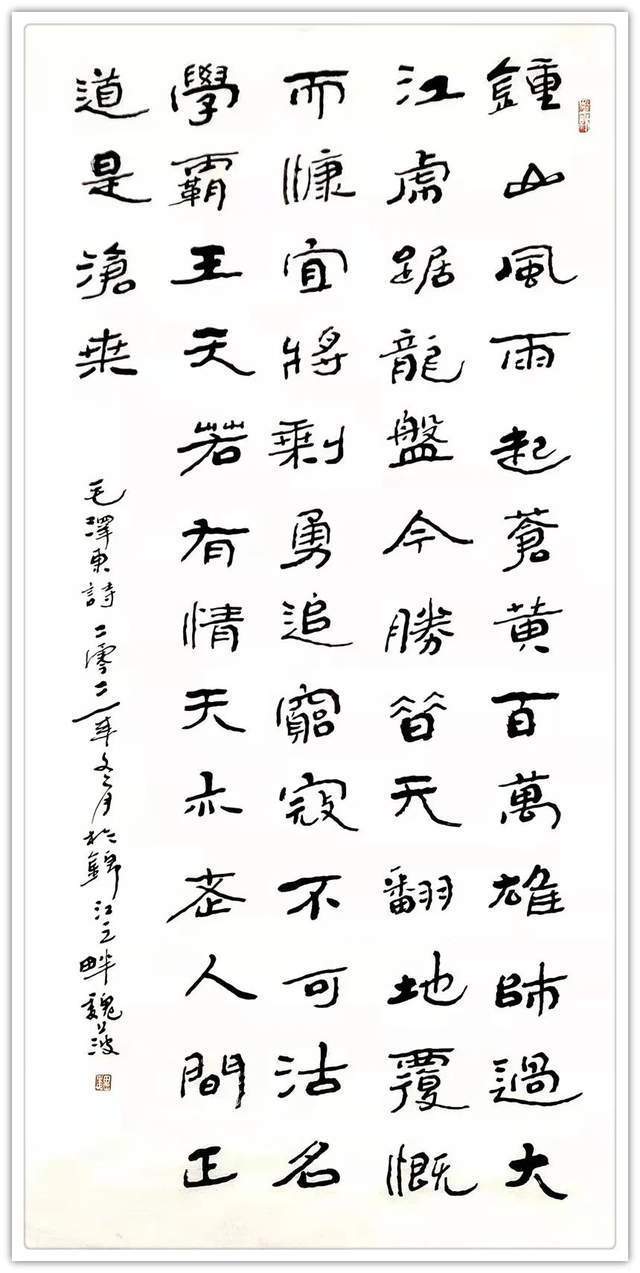 鍾山風雨起蒼黄百萬雄師過大
江虎踞龍盤今勝昔天翻地覆慨
而慷宜將剩勇追窮寇不可沽名
學霸王天若有情天亦老人間正
道是滄桒
毛澤東詩二零二一年冬月於錦江之畔魏波